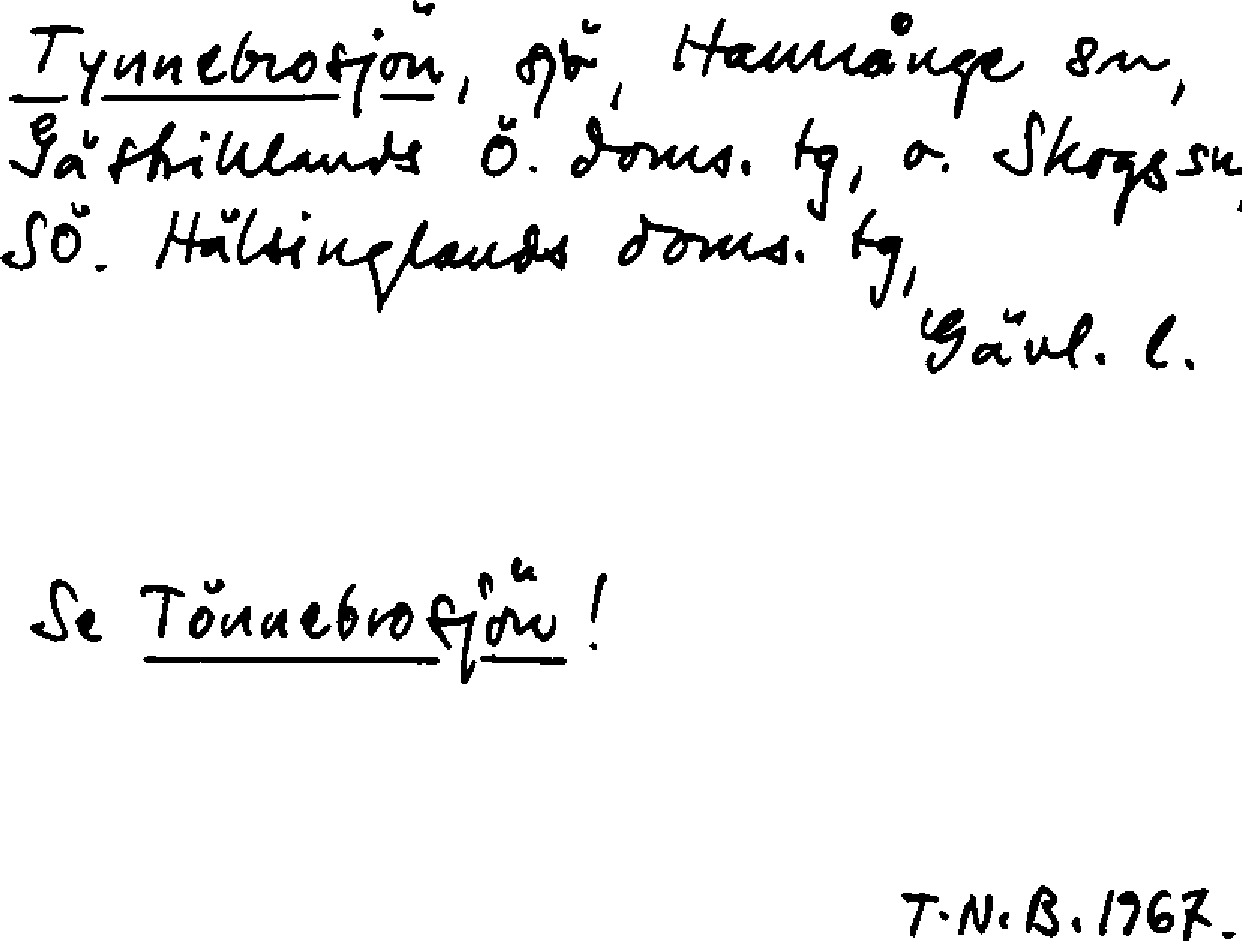 Tynnebrosjön, sjö, Hamrånge sn,
Gästriklands Ö. doms. tg, o. Skogs sn,
SÖ. Hälsinglands doms. tg,
Gävl. l.
Se Tönnebrosjön!
T.N.B. 1967.